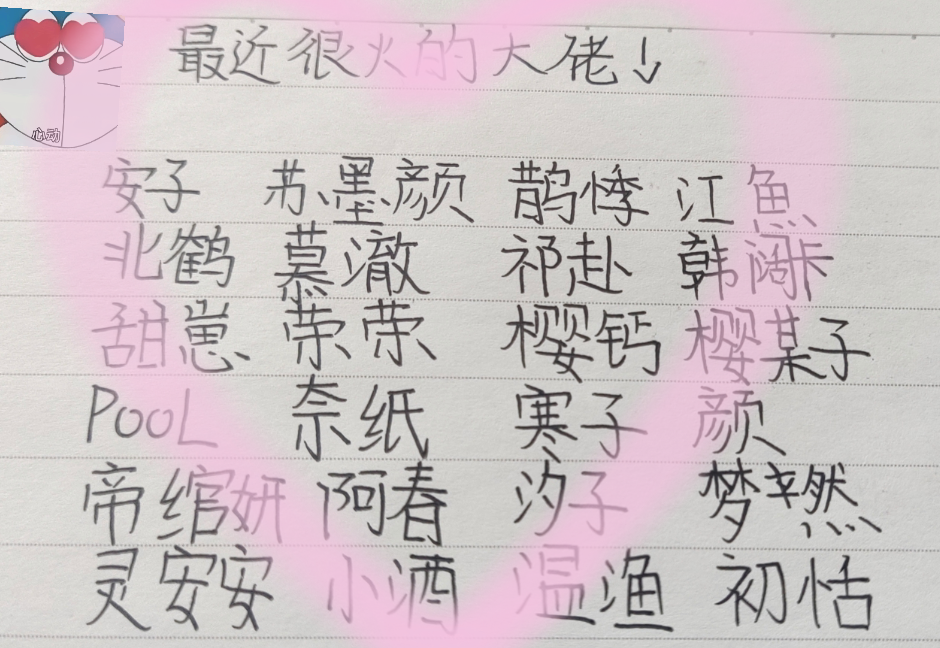 最近很火的大佬↓
心动
安子 苏墨颜 鹊悸 江魚
北鹤 慕澈 祁赴 韩阔卡
甜崽 荣荣 樱钙 樱某子
PooL 奈纸 寒子 颜
帝绾妍 阿春 汐子 梦辛然
灵安安 小酒 温渔 初恬